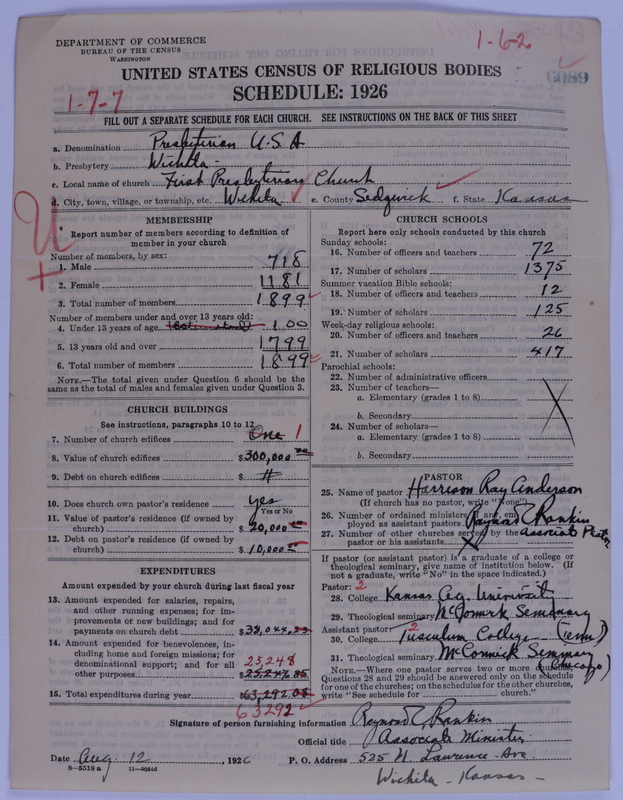 DEPARTMENT OF COMMERCE
BUREAU OF THE CENSUS
WASHINGTON
1-6-2
6089
UNITED STATES CENSUS OF RELIGIOUS BODIES
SCHEDULE: 1926
1-7-7
FILL OUT A SEPARATE SCHEDULE FOR EACH CHURCH. SEE INSTRUCTIONS ON THE BACK OF THIS SHEET
a. Denomination Presbyterian U.S.A
b. Presbytery Wichita -
c. Local name of church First Presbyterian Church
d. City, town, village, or township, etc. Wichita e. County Sedgwick f. State Kansas
MEMBERSHIP
Report number of members according to definition of
member in your church
Number of members, by sex:
1. Male 718
2. Female 1181
3. Total number of members 1899
Number of members under and over 13 years old:
4. Under 13 years of age (Estimated) 100
5. 13 years old and over 1799
6. Total number of members 1899
NOTE.—The total given under Question 6 should be the
same as the total of males and females given under Question 3.
CHURCH BUILDINGS
See instructions, paragraphs 10 to 12
7. Number of church edifices One 1
8. Value of church edifices $ 300,000 00
9. Debt on church edifices $ #
10. Does church own pastor's residence yes
Yes or No
11. Value of pastor's residence (if owned by
church) $ 20,000 00
12. Debt on pastor's residence (if owned by
church) $ 10,000 00
EXPENDITURES
Amount expended by your church during last fiscal year
13. Amount expended for salaries, repairs,
and other running expenses; for im-
provements or new buildings; and for
payments on church debt $ 38,044
14. Amount expended for benevolences, in-
cluding home and foreign missions; for
denominational support; and for all 25,248
other purposes
15. Total expenditures during year $ 63,292.08
63292
CHURCH SCHOOLS
Report here only schools conducted by this church
Sunday schools:
16. Number of officers and teachers 72
17. Number of scholars 1375
Summer vacation Bible schools:
18. Number of officers and teachers 12
19. Number of scholars 125
Week-day religious schools:
20. Number of officers and teachers 26
21. Number of scholars 417
Parochial schools:
22. Number of administrative officers
23. Number of teachers—
a. Elementary (grades 1 to 8)
b. Secondary
24. Number of scholars—
a. Elementary (grades 1 to 8)
b. Secondary
PASTOR
25. Name of pastor Harrison Ray Anderson
(If church has no pastor, write "None")
26. Number of ordained ministers, if any, em-
ployed as assistant pastors Raymond C Rankin
27. Number of other churches served by the Associate Pastor
pastor or his assistants X
If pastor (or assistant pastor) is a graduate of a college or
theological seminary, give name of institution below. (If
not a graduate, write "No" in the space indicated.)
Pastor: 2
28. College Kansas Ag. University
29. Theological seminary McCormick Seminary
Assistant pastor: 2
30. College Tusculum College (Tenn)
31. Theological seminary McCormick Seminary
(Chicago)
NOTE.—Where one pastor serves two or more churches,
Questions 28 and 29 should be answered only on the schedule
for one of the churches; on the schedules for the other churches,
write "See schedule for church."
Signature of person furnishing information Raymond C Rankin
Official title Associate Minister
Date Aug. 12, 1926 P. O. Address 525 N. Lawrence Ave
8—5518 a 11—9084d Wichita - Kansas -